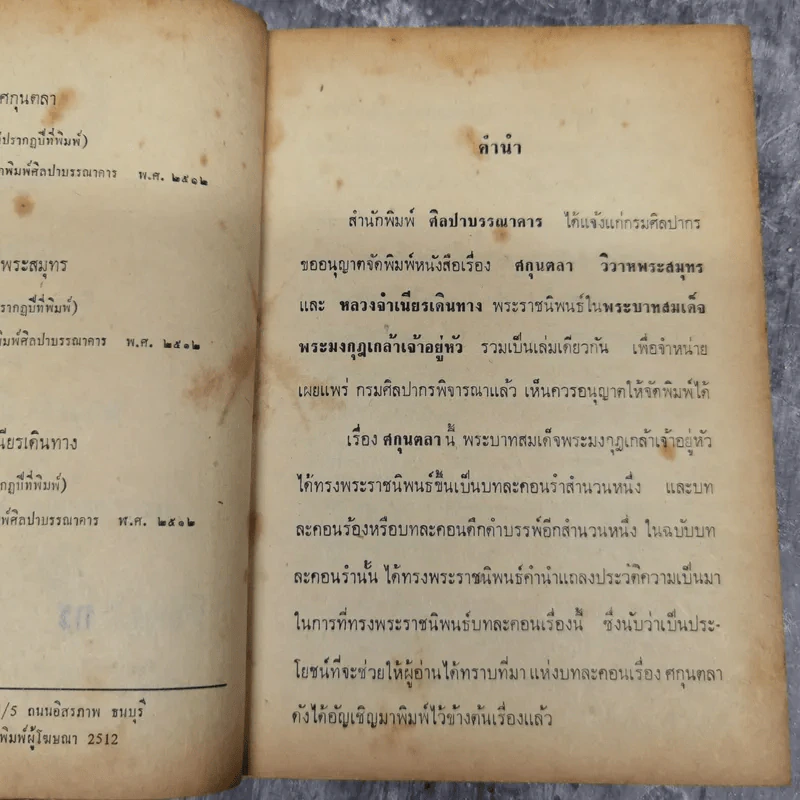 ศกุนตลา
ปรากฏปีที่พิมพ์)
พิมพ์ศิลปาบรรณาคาร พ.ศ. ๒๕๑๒
พระสมุทร
รากฏปีที่พิมพ์)
พิมพ์ศิลปาบรรณาคาร พ.ศ. ๒๕๑๒
นียรเดินทาง
กฏปีที่พิมพ์)
พ์ศิลปาบรรณาคาร พ.ศ. ๒๕๑๒
/5 ถนนอิสรภาพ ธนบุรี
พิมพ์ผู้โฆษณา 2512
คำนำ
สำนักพิมพ์ ศิลปาบรรณาคาร ได้แจ้งแก่กรมศิลปากร
ขออนุญาตจัดพิมพ์หนังสือเรื่อง ศกุนตลา วิวาหพระสมุทร
และ หลวงจำเนียรเดินทาง พระราชนิพนธ์ในพระบาทสมเด็จ
พระมงกุฎเกล้าเจ้าอยู่หัว รวมเป็นเล่มเดียวกัน เพื่อจำหน่าย
เผยแพร่ กรมศิลปากรพิจารณาแล้ว เห็นควรอนุญาตให้จัดพิมพ์ได้
เรื่อง ศกุนตลา นี้ พระบาทสมเด็จพระมงกุฎเกล้าเจ้าอยู่หัว
ได้ทรงพระราชนิพนธ์ขึ้นเป็นบทละคอนรำสำนวนหนึ่ง และบท
ละคอนร้องหรือบทละคอนดึกดำบรรพ์อีกสำนวนหนึ่ง ในฉบับบท
ละคอนรำนั้น ได้ทรงพระราชนิพนธ์คำนำแถลงประวัติความเป็นมา
ในการที่ทรงพระราชนิพนธ์บทละคอนเรื่องนี้ ซึ่งนับว่าเป็นประ-
โยชน์ที่จะช่วยให้ผู้อ่านได้ทราบที่มา แห่งบทละคอนเรื่อง ศกุนตลา
ดังได้อัญเชิญมาพิมพ์ไว้ข้างต้นเรื่องแล้ว